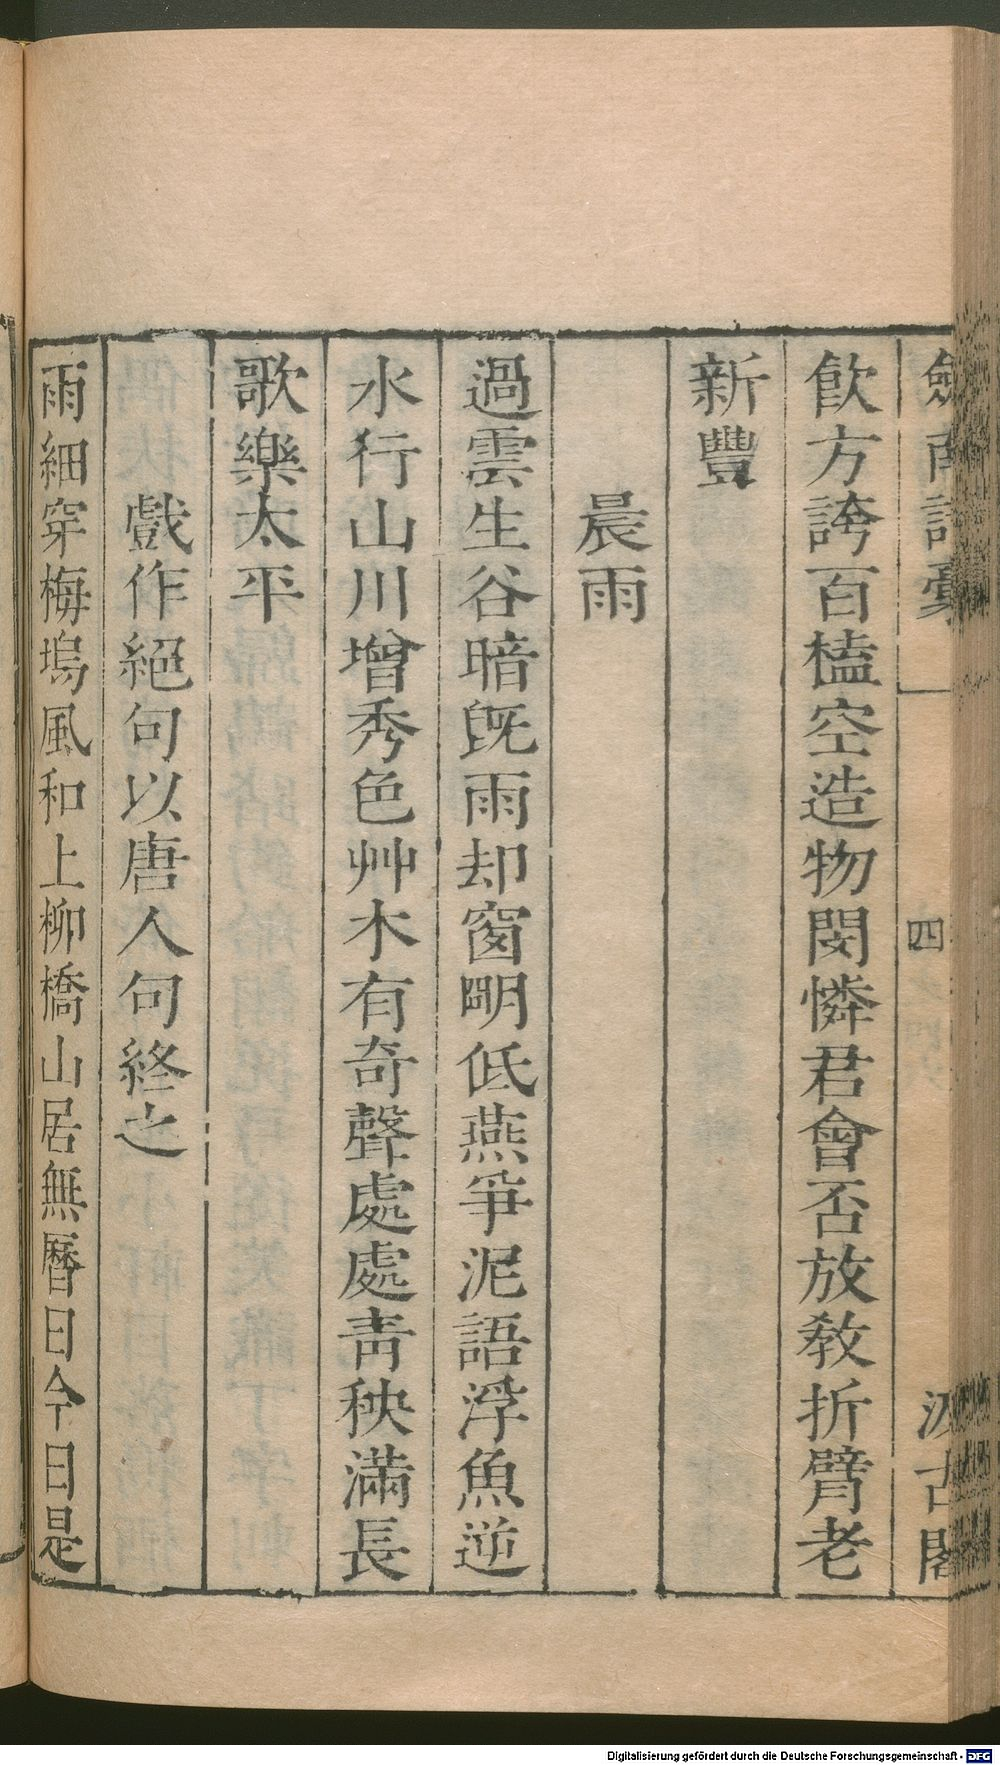 劒南詩稾 四 汲古閣
飲方誇百榼空造物閔憐君會否放敎折臂老
新豐
晨雨
過雲生谷暗旣雨却窗明低燕爭泥語浮魚逆
水行山川增秀色艸木有奇聲處處靑秧滿長
歌樂太平
戲作絕句以唐人句終之
雨細穿梅塢風和上柳橋山居無曆日今日是
Digitalisierung gefördert durch die Deutsche Forschungsgemeinschaft - DFG